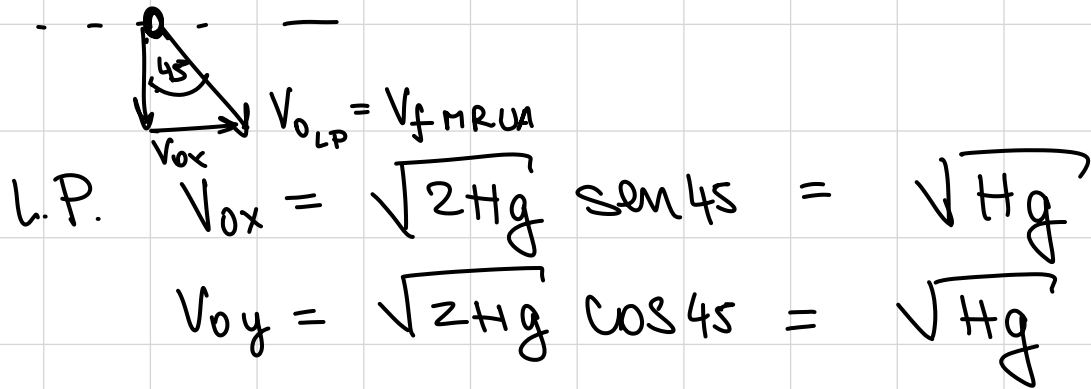 45
V₀ₓ
V₀ LP = Vf MRUA
L.P. V₀ₓ = √2Hg sen 45 = √Hg
V₀y = √2Hg cos 45 = √Hg